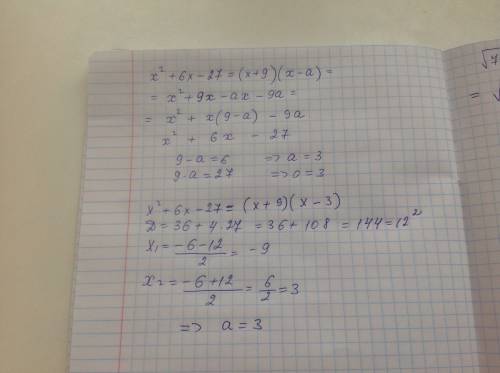 x² + 6x - 27 = (x+9)(x-a) =
= x² + 9x - ax - 9a =
= x² + x(9-a) - 9a
x² + 6x - 27
9-a=6 => a=3
9·a=27 => a=3
x² + 6x - 27 = (x+9)(x-3)
D = 36 + 4·27 = 36 + 108 = 144 = 12²
x₁ = (-6-12)/2 = -9
x₂ = (-6+12)/2 = 6/2 = 3
=> a = 3
√7
= √